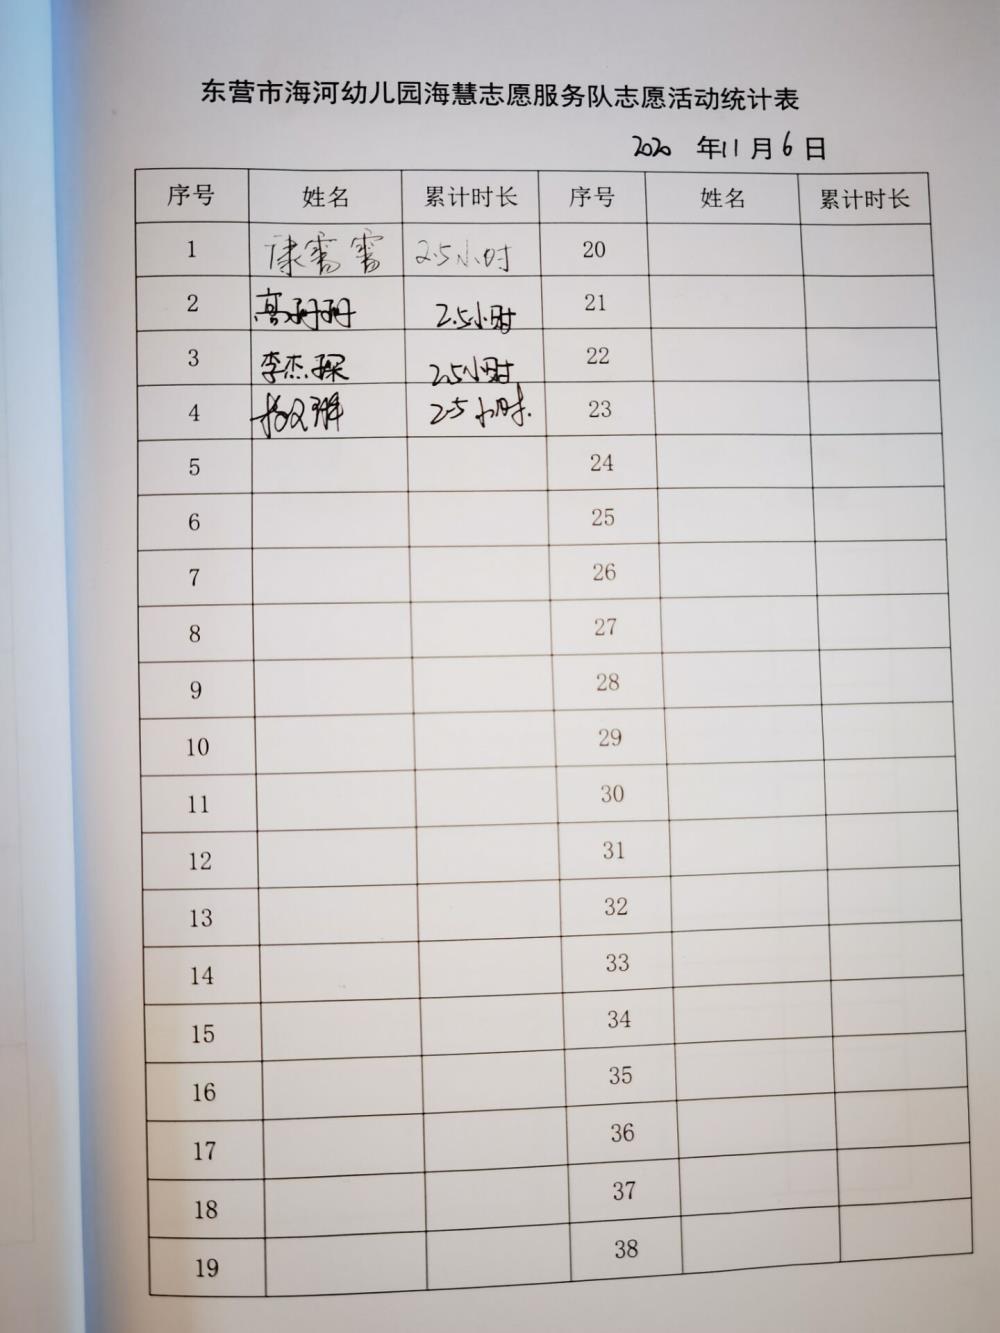 东营市海河幼儿园海慧志愿服务队志愿活动统计表
2020 年11月6日
序号 姓名 累计时长 序号 姓名 累计时长
1 康雪雪 2.5小时 20
2 高珊珊 2.5小时 21
3 李杰琛 2.5小时 22
4 2.5小时. 23
5 24
6 25
7 26
8 27
9 28
10 29
11 30
12 31
13 32
14 33
15 34
16 35
17 36
18 37
19 38